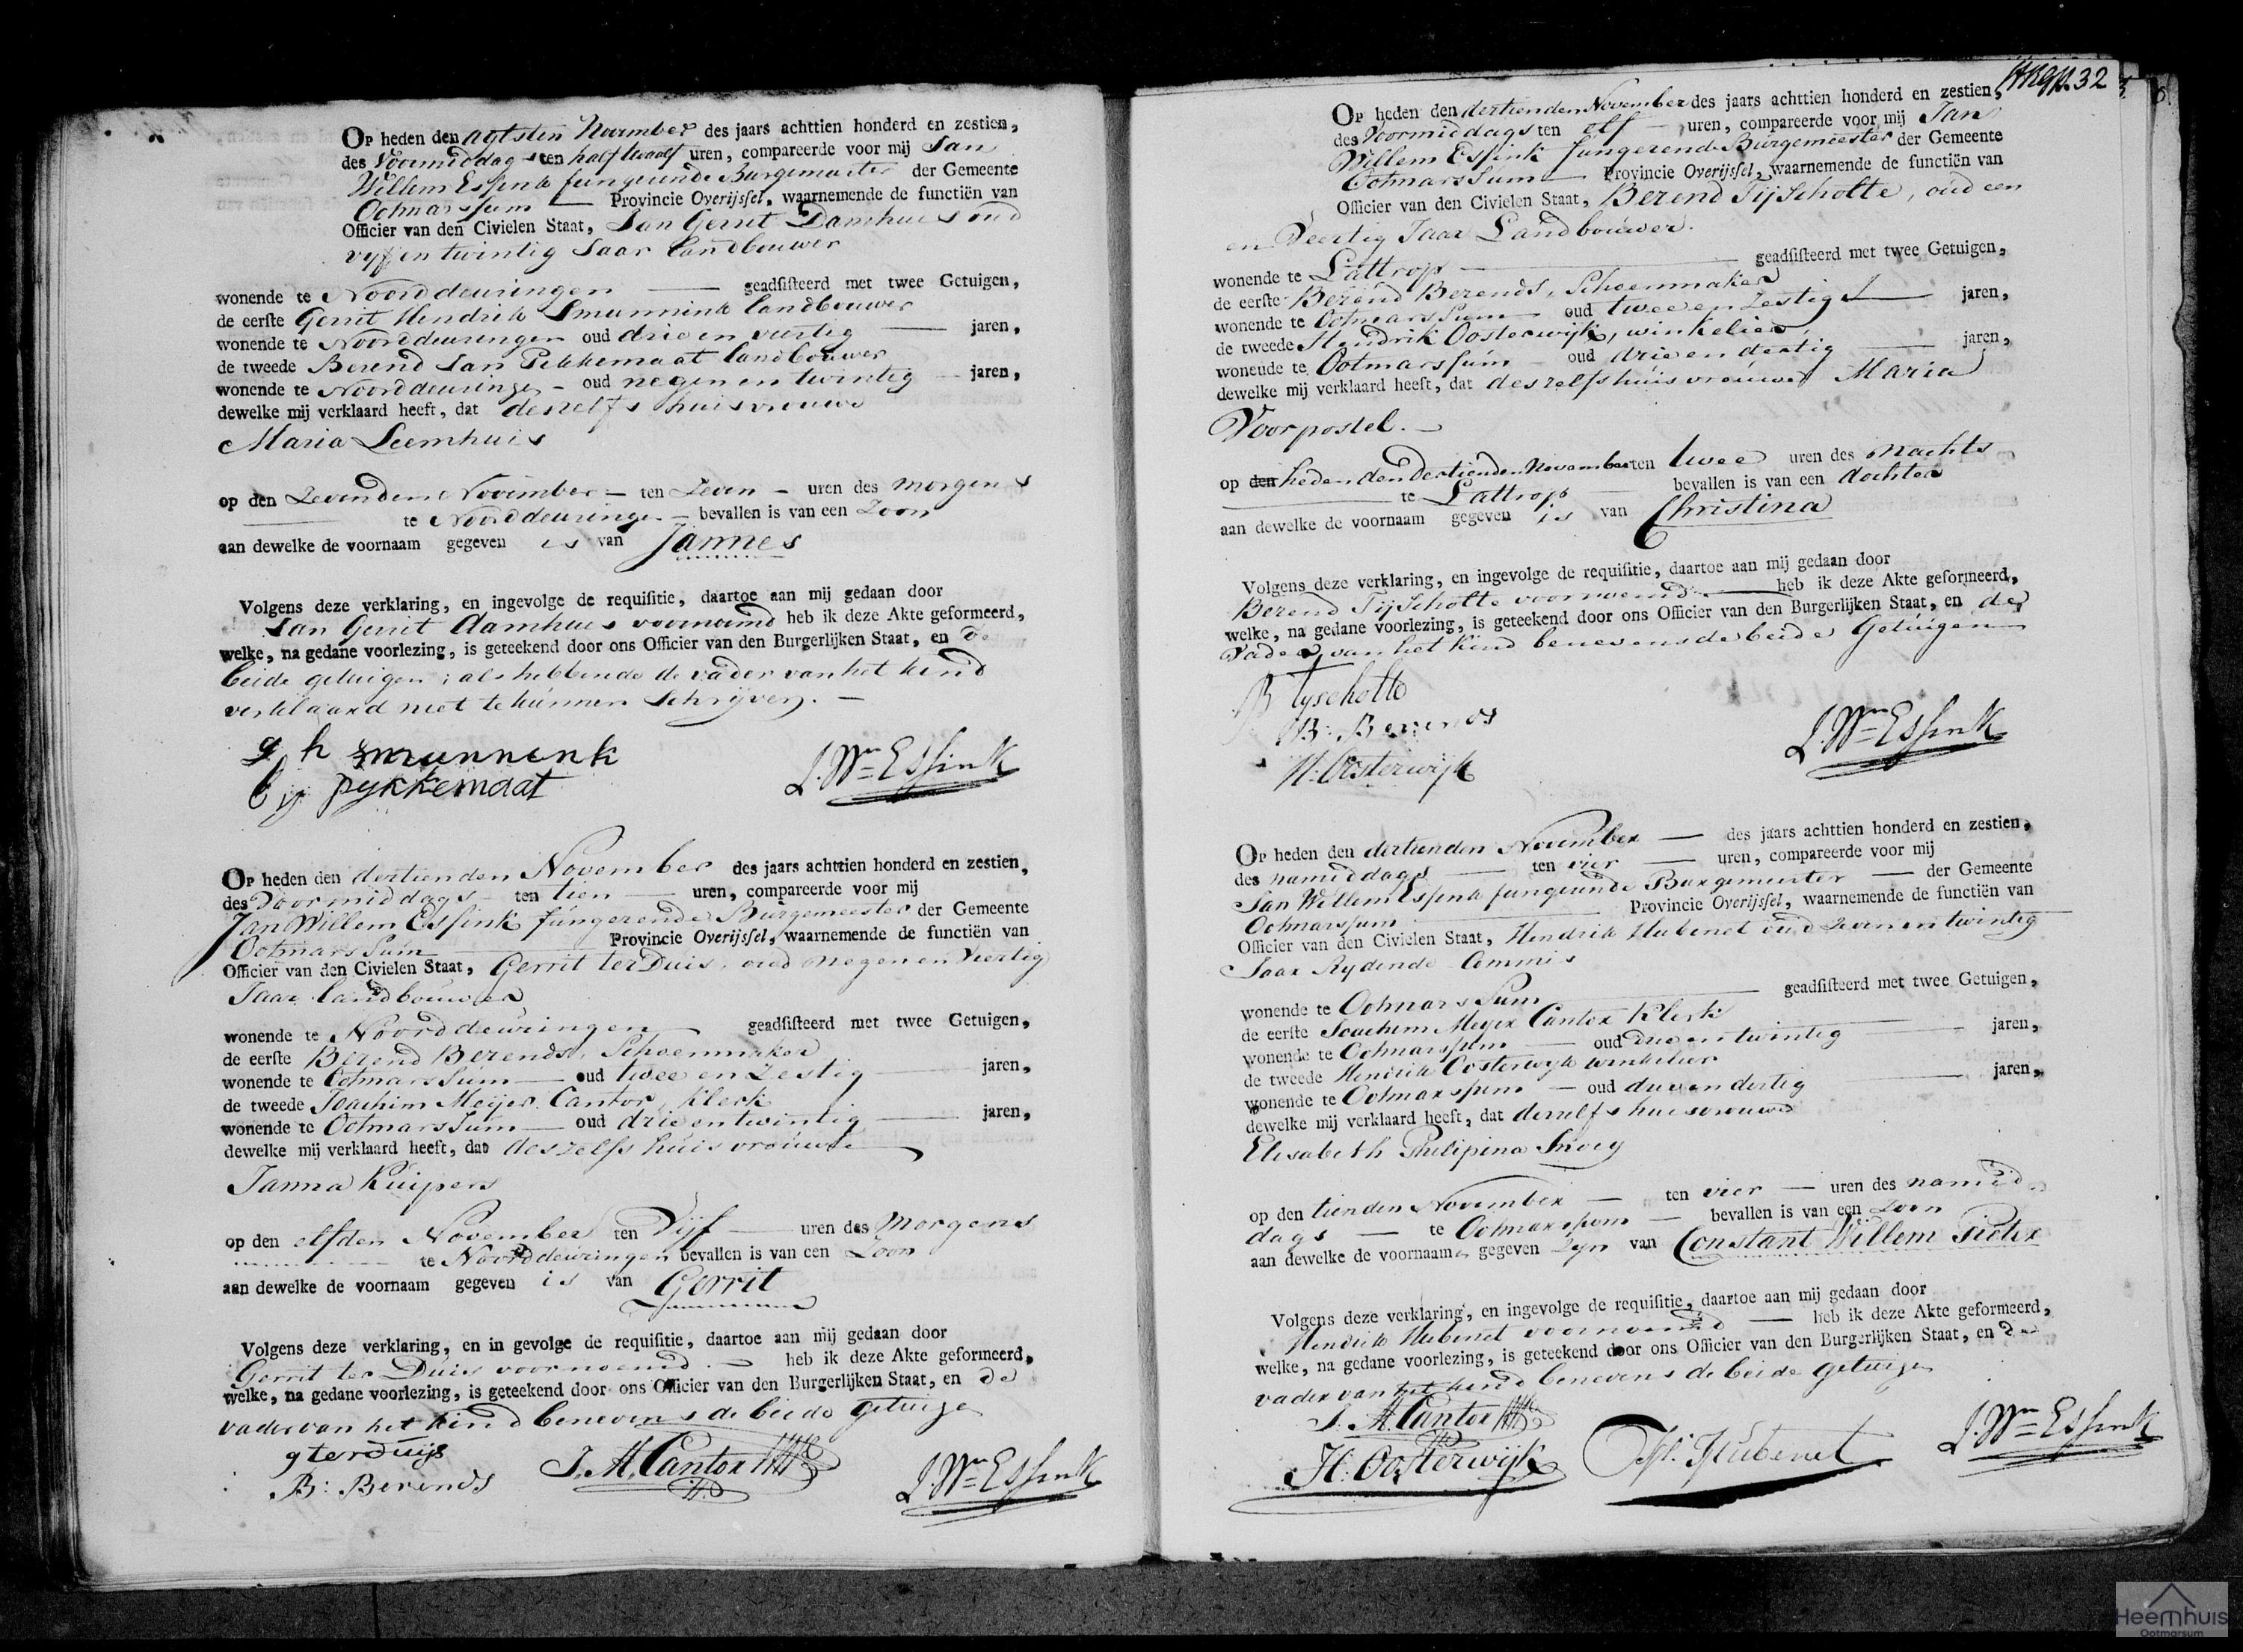 Op heden den agtsten November des jaars achttien honderd en zestien,
des Voormiddags ten half twaalf uren, compareerde voor mij Jan
Willem Essink fungerende Burgemeester der Gemeente
Ootmarssum — Provincie Overijssel, waarnemende de functiën van
Officier van den Civielen Staat, Jan Gerrit Damhuis oud
vyf en twintig Jaar landbouwer
wonende te Noorddeuringen — geadsisteerd met twee Getuigen,
de eerste Gerrit Hendrik Smunnink landbouwer
wonende te Noorddeuringen oud drie en veertig — jaren,
de tweede Berend Jan Pikkemaat landbouwer
wonende te Noorddeuringe - oud negen en twintig — jaren,
dewelke mij verklaard heeft, dat deszelfs huisvrouwe
Maria Leemhuis
op den Zevenden November — ten Zeven - uren des morgens
te Noorddeuringe — bevallen is van een Zoon
aan dewelke de voornaam gegeven is van Jannes
Volgens deze verklaring, en ingevolge de requisitie, daartoe aan mij gedaan door
Jan Gerrit Damhuis voornoemd heb ik deze Akte geformeerd,
welke, na gedane voorlezing, is geteekend door ons Officier van den Burgerlijken Staat, en de
beide getuigen; als hebbende de vader van het kind
verklaard niet te kunnen Schrijven. —
g h smunnenk
pykkemaat
J. Wm Essink
Op heden den dertienden November des jaars achttien honderd en zestien,
des Voormiddags — ten tien — uren, compareerde voor mij
Jan Willem Essink fungerende Burgemeester der Gemeente
Ootmarssum — Provincie Overijssel, waarnemende de functiën van
Officier van den Civielen Staat, Gerrit ter Duis, oud negen en Veertig
Jaar landbouwer
wonende te Noorddeuringen — geadsisteerd met twee Getuigen,
de eerste Berend Berends, Schoenmaker
wonende te Ootmarssum — oud twee en zestig — jaren,
de tweede Joachim Meijer Cantor, Klerk
wonende te Ootmarssum — oud drie en twintig — jaren,
dewelke mij verklaard heeft, dat deszelfs huisvrouwe
Janna Kuipers
op den elfden November ten Vijf — uren des Morgens
te Noorddeuringen bevallen is van een Zoon
aan dewelke de voornaam gegeven is van Gerrit
Volgens deze verklaring, en in gevolge de requisitie, daartoe aan mij gedaan door
Gerrit ter Duis voornoemd. — heb ik deze Akte geformeerd,
welke, na gedane voorlezing, is geteekend door ons Officier van den Burgerlijken Staat, en de
vader van het kind benevens de beide getuige
g terduijs
B: Berends
J. M. Cantor
J. Wm Essink
32
Op heden den dertienden November des jaars achttien honderd en zestien,
des Voormiddags ten elf — uren, compareerde voor mij Jan
Willem Essink fungerende Burgemeester der Gemeente
Ootmarssum — Provincie Overijssel, waarnemende de functiën van
Officier van den Civielen Staat, Berend Tijscholte, oud een
en Veertig Jaar Landbouwer.
wonende te Lattrop — geadsisteerd met twee Getuigen,
de eerste Berend Berends, Schoenmaker
wonende te Ootmarssum — oud twee en zestig — jaren,
de tweede Hendrik Oosterwijk, winkelier
wonende te Ootmarssum — oud drie en dertig — jaren,
dewelke mij verklaard heeft, dat deszelfs huisvrouwe Maria
Voorpostel. —
op den heden den dertienden November ten twee uren des Nachts
te Lattrop — bevallen is van een dochter
aan dewelke de voornaam gegeven is van Christina
Volgens deze verklaring, en ingevolge de requisitie, daartoe aan mij gedaan door
Berend Tijscholte voornoemd — heb ik deze Akte geformeerd,
welke, na gedane voorlezing, is geteekend door ons Officier van den Burgerlijken Staat, en de
Vader van het Kind benevens de beide Getuigen
B Tyscholte
B: Berends
H: Oosterwijk
J. Wm Essink
Op heden den dertienden November — des jaars achttien honderd en zestien,
des namiddags — ten vier — uren, compareerde voor mij
Jan Willem Essink fungerende Burgemeester — der Gemeente
Ootmarssum — Provincie Overijssel, waarnemende de functiën van
Officier van den Civielen Staat, Hendrik Hubenet oud zeven en twintig
Jaar Rydende Commis
wonende te Ootmarssum — geadsisteerd met twee Getuigen,
de eerste Joachim Meyer Cantor Klerk
wonende te Ootmarssum — oud drie en twintig — jaren,
de tweede Hendrik Oosterwyk winkelier
wonende te Ootmarssum — oud drie en dertig — jaren,
dewelke mij verklaard heeft, dat derzelfs huisvrouwe
Elisabeth Philipina Snoey
op den tienden November — ten vier — uren des namid
dags — te Ootmarssum — bevallen is van een Zoon
aan dewelke de voornaamen gegeven zyn van Constant Willem Pieter
Volgens deze verklaring, en ingevolge de requisitie, daartoe aan mij gedaan door
Hendrik Hubenet voornoemd — heb ik deze Akte geformeerd,
welke, na gedane voorlezing, is geteekend door ons Officier van den Burgerlijken Staat, en de
vader van het kind benevens de beide getuige
J. M. Cantor
H: Oosterwijk
H. Hubenet
J. Wm Essink
Heemhuis
Ootmarsum